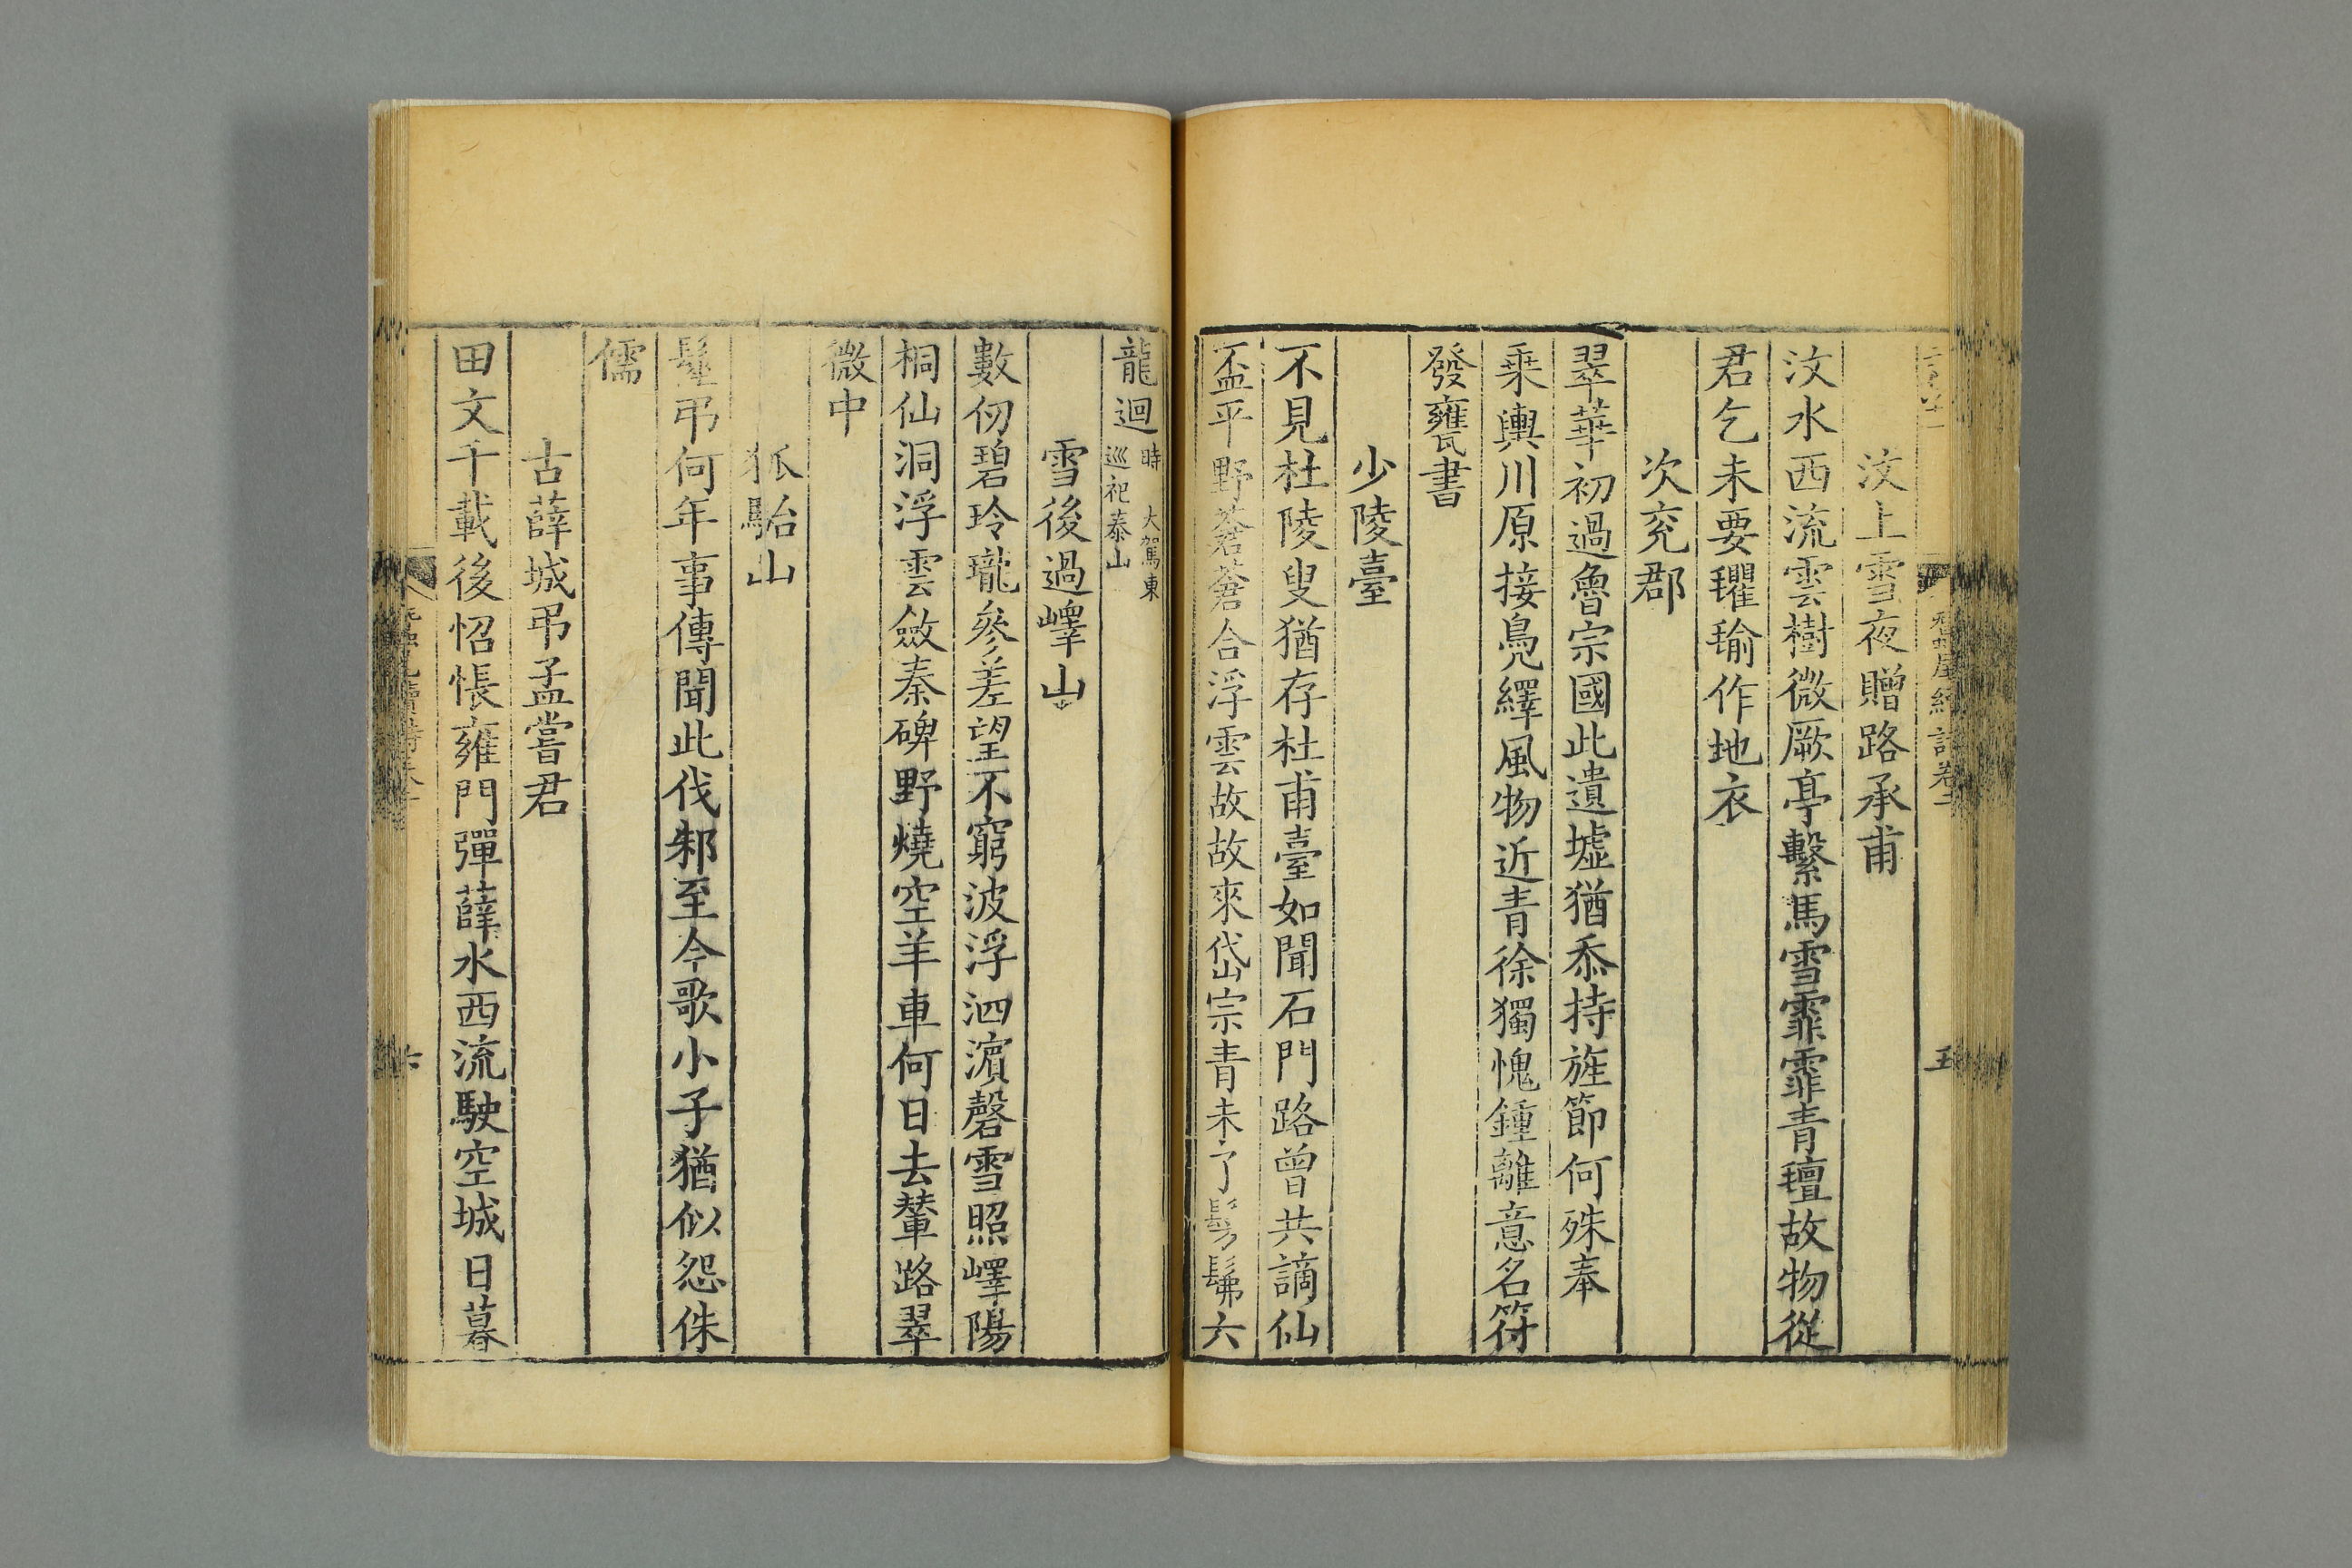 汶上雪夜贈路承甫
汶水西流雲樹微厥亭繫馬雪霏霏青氊故物從
君乞未要氍毹作地衣
次兖郡
翠華初過魯宗國此遺墟猶忝持旌節何殊奉
乗輿川原接鳧繹風物近青徐獨愧鍾離意名符
發甕書
少陵臺
不見杜陵叟猶存杜甫臺如聞石門路曾共謫仙
盃平野蒼蒼合浮雲故故來岱宗青未了髣髴六
五
龍迴時 大駕東
巡祀泰山
雪後過嶧山
數仞碧玲瓏參差望不窮波浮泗濵磬雪照嶧陽
桐仙洞浮雲斂秦碑野燒空羊車何日去輦路翠
微中
狐駘山
髽弔何年事傳聞此伐邾至今歌小子猶似怨侏
儒
古薛城弔孟嘗君
田文千載後怊悵雍門彈薛水西流駛空城日暮
六